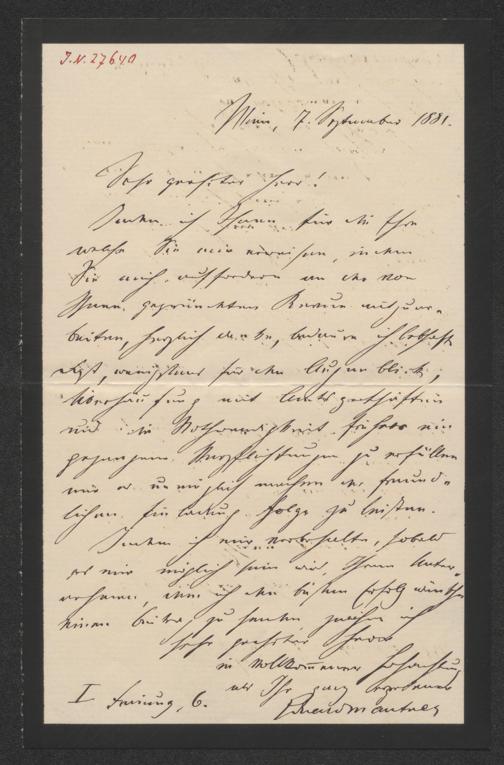 I.N. 27640
Wien, 7. September 1881.
Sehr geehrter Herr!
Indem ich Ihnen für die Ehre
welche Sie mir erweisen, indem
Sie mich auffordern an der von
Ihnen gegründeten Revue mitzuar-
beiten, herzlich danke, bedaure ich lebhaft
daß, wenigstens für den Augenblick,
Überhäufung mit Amtsgeschäften
und die Nothwendigkeit früher ein
gegangene Verpflichtungen zu erfüllen
mir es unmöglich machen der freund-
lichen Einladung Folge zu leisten.
Indem ich mir vorbehalte, sobald
es mir möglich sein wird, Ihrem Unter-
nehmen, dem ich den besten Erfolg wünsche
einen Beitrag zu senden, zeichne ich
sehr geehrter Herr
in vollkommener Hochachtung
als Ihr ganz ergebener
Eduard Mautner
I Freiung, 6.